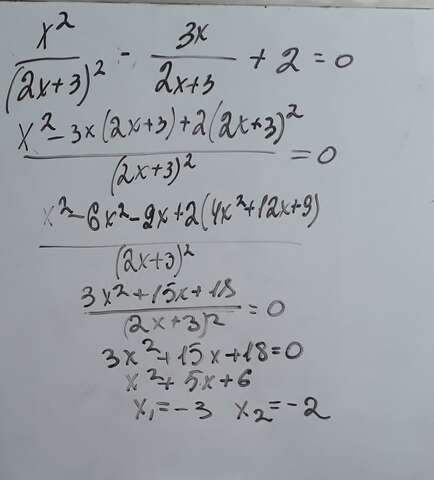 x²/(2x+3)² - 3x/(2x+3) + 2 = 0
x² - 3x(2x+3) + 2(2x+3)²/(2x+3)² = 0
x² - 6x² - 9x + 2(4x² + 12x + 9)/(2x+3)²
3x² + 15x + 18/(2x+3)² = 0
3x² + 15x + 18 = 0
x² + 5x + 6
x₁ = -3 x₂ = -2